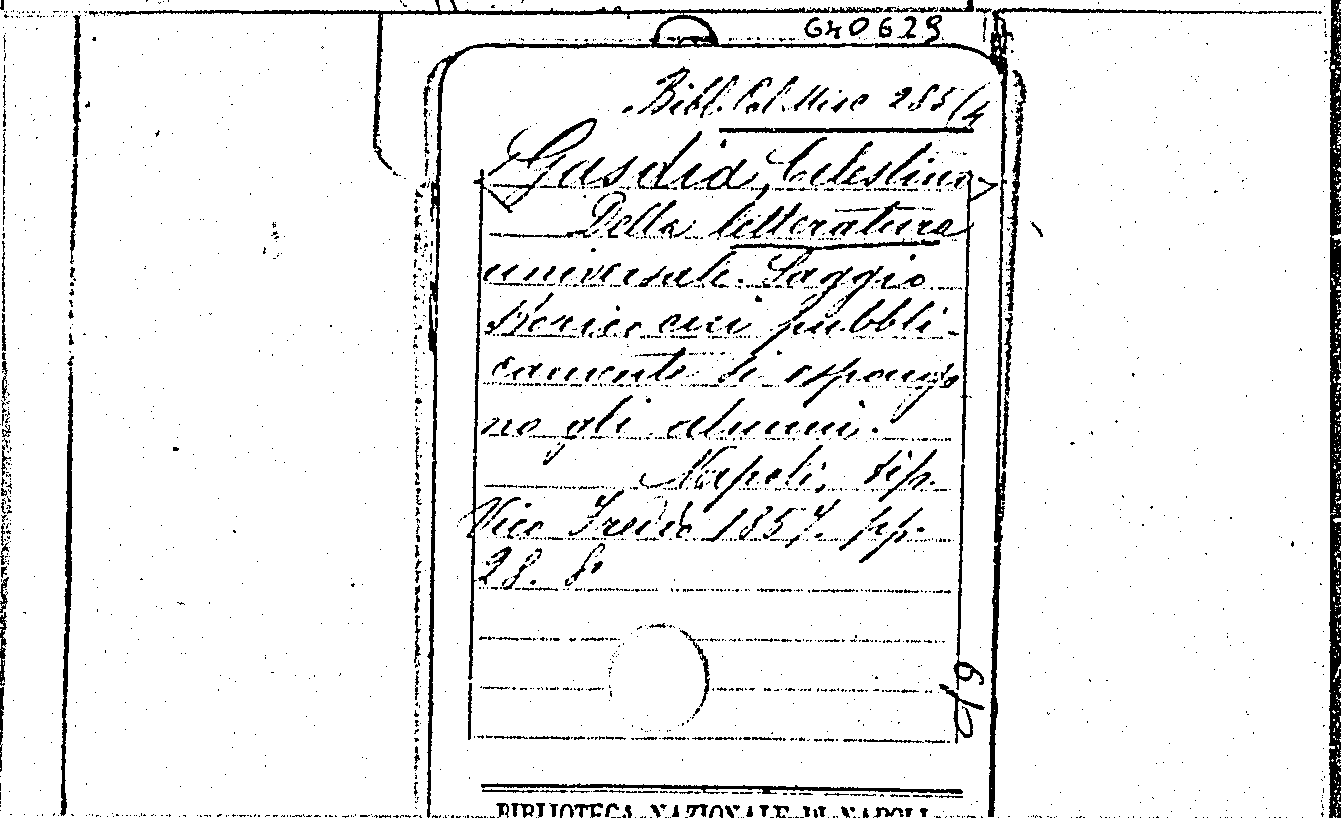 640629
Bibl. Col. Misc 285/4
Gasdia, Celestino
Della letteratura
universale. Saggio
storico cui pubbli-
camente si espongo
no gli alunni.
Napoli, tip.
Vico Freddo 1857. pp.
28. 8°
BIBLIOTECA NAZIONALE DI NAPOLI